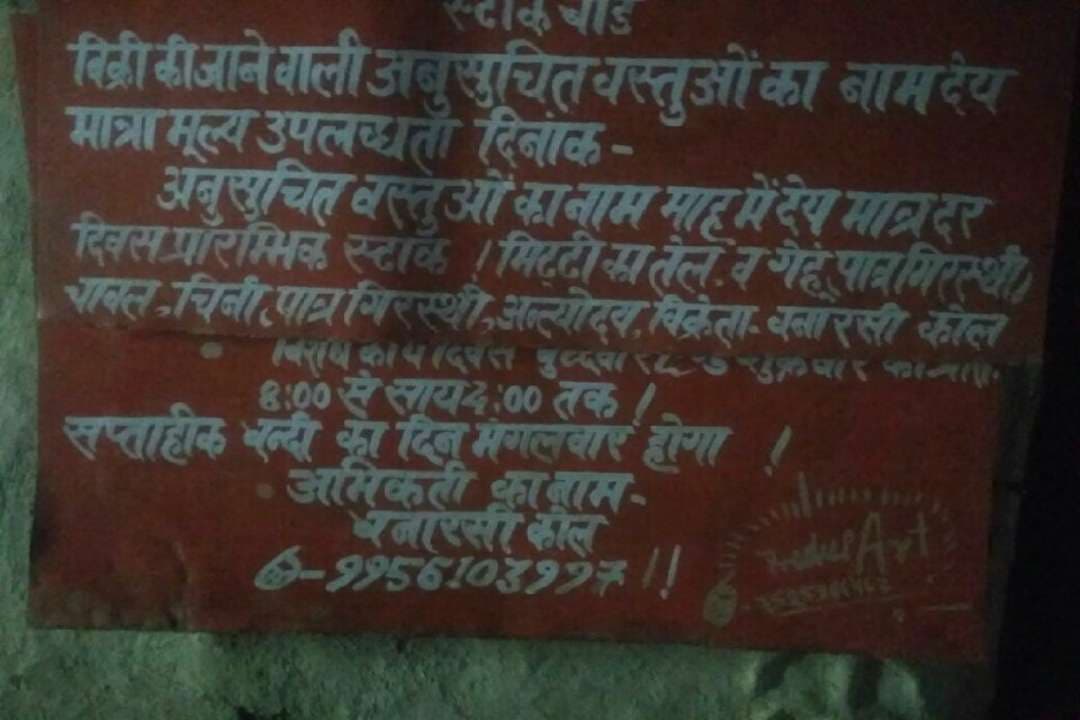 स्टाक बोर्ड
बिक्री की जाने वाली अनुसुचित वस्तुओं का नाम देय
मात्रा मूल्य उपलब्धता दिनांक-
अनुसुचित वस्तुओं का नाम माह में देय मात्र दर
दिवस प्रारम्भिक स्टाक । मिट्टी का तेल, व गेहूं, पात्र गिरस्थी,
चावल, चिनी, पात्र गिरस्थी, अन्त्योदय, विक्रेता- बनारसी कोल
कार्य दिवस
8:00 से साय 4:00 तक !
सप्ताहीक बन्दी का दिन मंगलवार होगा !
अभिकर्ता का नाम-
बनारसी कोल
Art